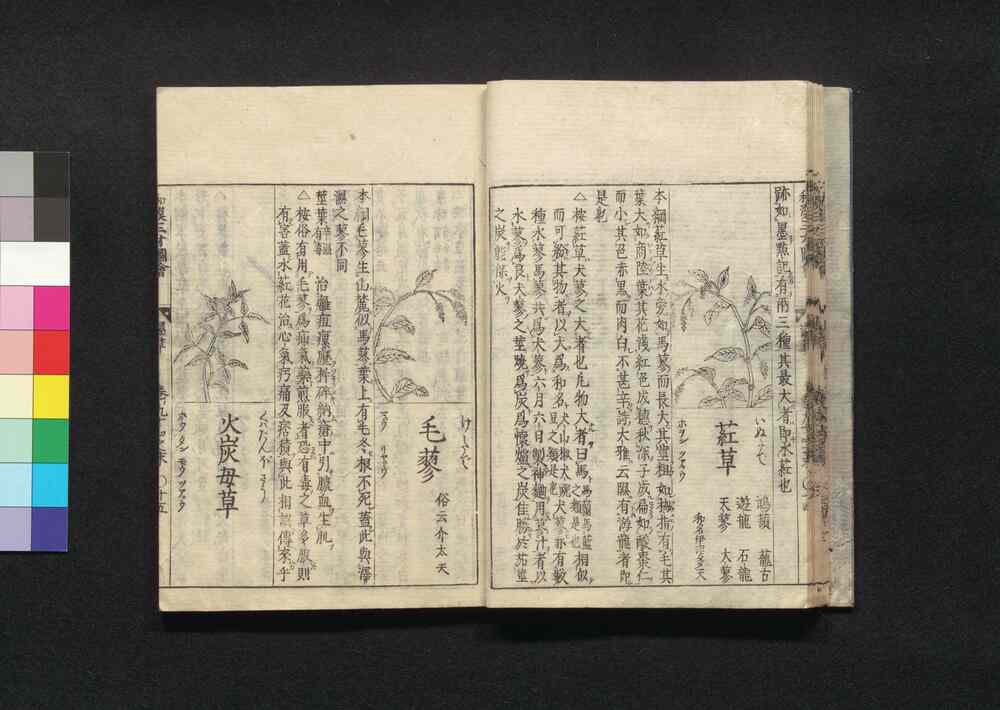 跡如墨㸃記有兩三種其最大者即水葒也
葒草
いぬたで
ホヲン ツァウ
鴻䕞 蘢古
遊龍 石龍
天蓼 大蓼
和名伊沼多天
本綱葒草生水旁如馬蓼而長大其莖粗如拇指有毛其
葉大如商陸葉其花淺紅色成穗秋深子成扁如酸棗仁
而小其色赤黒而肉白不甚辛詩大雅云隰有游龍者即
是也
△按葒草犬蓼之大者也凡物大者曰馬馬蘭馬藍之類是也相似
而可賤其物者以犬爲和名犬山椒犬豌豆之類是也犬蓼亦有數
種水蓼馬蓼共爲犬蓼六月六日製神麹用蓼汁者以
水蓼爲良犬蓼之莖燒爲炭爲懷爐之炭佳勝於茄莖
之炭能保火
毛蓼
けたで
マ○ウ リャウ
俗云介太天
本綱毛蓼生山麓似馬蓼葉上有毛冬根不死蓋此與澤
濕之蓼不同
莖葉辛温有毒 治癰疽瘻癧杵碎納瘡中引膿血生肌
△按俗有用毛蓼爲疝氣藥煎服者恐有毒之草多服則
有害蓋水葒花治心氣疼痛及痞積與此相誤傳來乎
火炭母草
くはたんぼさう
ホウ タン モウ ツァウ
和漢三才圖會
濕草
巻九十四之末
〇十五